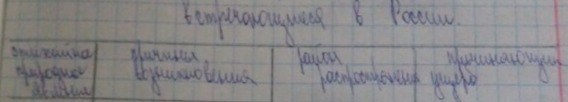 встречающиеся в России.
стихийно природное явления | причина возникновения | район распространения | причиняющий ущерб